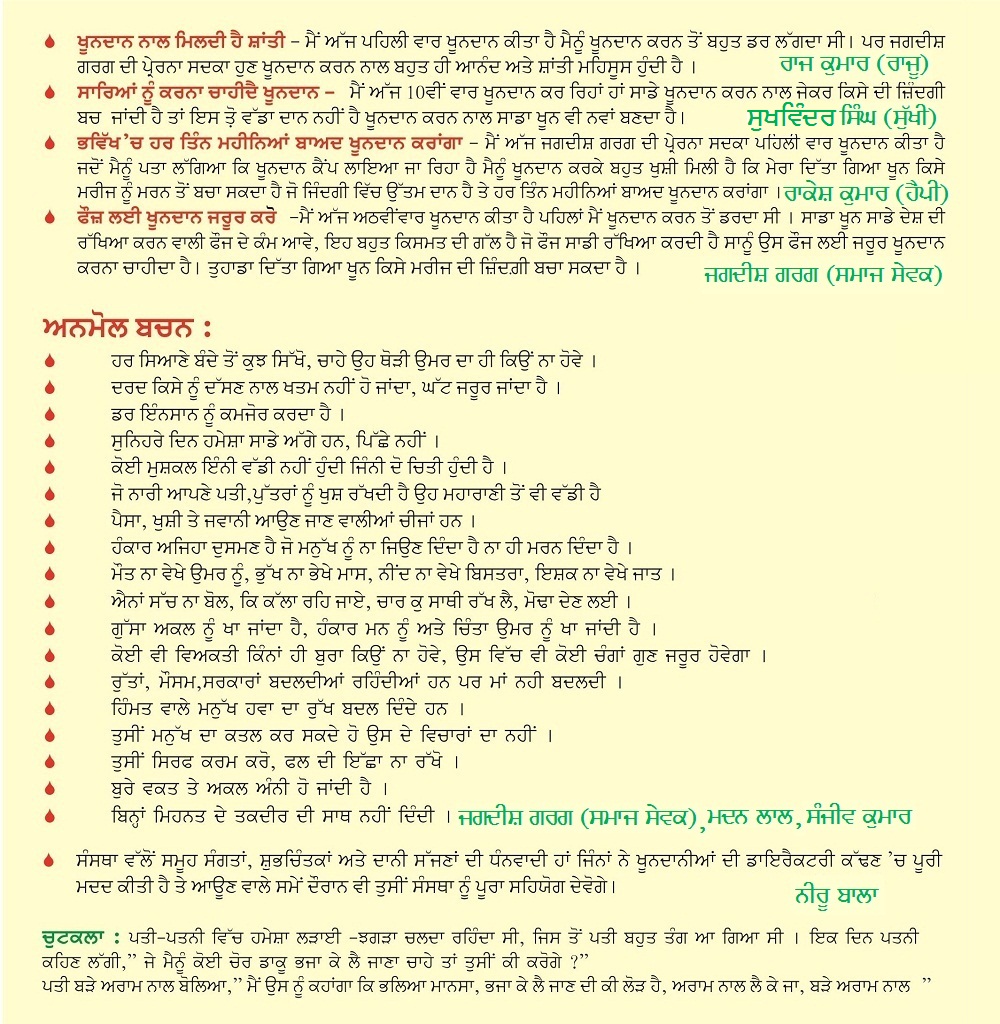 ਖੂਨਦਾਨ ਨਾਲ ਮਿਲਦੀ ਹੈ ਸ਼ਾਂਤੀ – ਮੈਂ ਅੱਜ ਪਹਿਲੀ ਵਾਰ ਖੂਨਦਾਨ ਕੀਤਾ ਹੈ ਮੈਨੂੰ ਖੂਨਦਾਨ ਕਰਨ ਤੋਂ ਬਹੁਤ ਡਰ ਲੱਗਦਾ ਸੀ। ਪਰ ਜਗਦੀਸ਼
ਗਰਗ ਦੀ ਪ੍ਰੇਰਨਾ ਸਦਕਾ ਹੁਣ ਖੂਨਦਾਨ ਕਰਨ ਨਾਲ ਬਹੁਤ ਹੀ ਆਨੰਦ ਅਤੇ ਸ਼ਾਂਤੀ ਮਹਿਸੂਸ ਹੁੰਦੀ ਹੈ । ਰਾਜ ਕੁਮਾਰ (ਰਾਜੂ)
ਸਾਰਿਆਂ ਨੂੰ ਕਰਨਾ ਚਾਹੀਦੈ ਖੂਨਦਾਨ – ਮੈਂ ਅੱਜ 10ਵੀਂ ਵਾਰ ਖੂਨਦਾਨ ਕਰ ਰਿਹਾਂ ਹਾਂ ਸਾਡੇ ਖੂਨਦਾਨ ਕਰਨ ਨਾਲ ਜੇਕਰ ਕਿਸੇ ਦੀ ਜ਼ਿੰਦਗੀ
ਬਚ ਜਾਂਦੀ ਹੈ ਤਾਂ ਇਸ ਤੋ਼ ਵੱਡਾ ਦਾਨ ਨਹੀਂ ਹੈ ਖੂਨਦਾਨ ਕਰਨ ਨਾਲ ਸਾਡਾ ਖੂਨ ਵੀ ਨਵਾਂ ਬਣਦਾ ਹੈ। ਸੁਖਵਿੰਦਰ ਸਿੰਘ (ਸੁੱਖੀ)
ਭਵਿੱਖ ’ਚ ਹਰ ਤਿੰਨ ਮਹੀਨਿਆਂ ਬਾਅਦ ਖੂਨਦਾਨ ਕਰਾਂਗਾ – ਮੈਂ ਅੱਜ ਜਗਦੀਸ਼ ਗਰਗ ਦੀ ਪ੍ਰੇਰਨਾ ਸਦਕਾ ਪਹਿਲੀ ਵਾਰ ਖੂਨਦਾਨ ਕੀਤਾ ਹੈ
ਜਦੋਂ ਮੈਨੂੰ ਪਤਾ ਲੱਗਿਆ ਕਿ ਖੂਨਦਾਨ ਕੈਂਪ ਲਾਇਆ ਜਾ ਰਿਹਾ ਹੈ ਮੈਨੂੰ ਖੂਨਦਾਨ ਕਰਕੇ ਬਹੁਤ ਖੁਸ਼ੀ ਮਿਲੀ ਹੈ ਕਿ ਮੇਰਾ ਦਿੱਤਾ ਗਿਆ ਖੂਨ ਕਿਸੇ
ਮਰੀਜ ਨੂੰ ਮਰਨ ਤੋਂ ਬਚਾ ਸਕਦਾ ਹੈ ਜੋ ਜਿੰਦਗੀ ਵਿੱਚ ਉੱਤਮ ਦਾਨ ਹੈ ਤੇ ਹਰ ਤਿੰਨ ਮਹੀਨਿਆਂ ਬਾਅਦ ਖੂਨਦਾਨ ਕਰਾਂਗਾ । ਰਾਕੇਸ਼ ਕੁਮਾਰ (ਹੈਪੀ)
ਫੌਜ਼ ਲਈ ਖੂਨਦਾਨ ਜਰੂਰ ਕਰੋ –ਮੈਂ ਅੱਜ ਅਠਵੀਂਵਾਰ ਖੂਨਦਾਨ ਕੀਤਾ ਹੈ ਪਹਿਲਾਂ ਮੈਂ ਖੂਨਦਾਨ ਕਰਨ ਤੋਂ ਡਰਦਾ ਸੀ । ਸਾਡਾ ਖੂਨ ਸਾਡੇ ਦੇਸ਼ ਦੀ
ਰੱਖਿਆ ਕਰਨ ਵਾਲੀ ਫੌਜ ਦੇ ਕੰਮ ਆਵੇ, ਇਹ ਬਹੁਤ ਕਿਸਮਤ ਦੀ ਗੱਲ ਹੈ ਜੋ ਫੌਜ ਸਾਡੀ ਰੱਖਿਆ ਕਰਦੀ ਹੈ ਸਾਨੂੰ ਉਸ ਫੌਜ ਲਈ ਜਰੂਰ ਖੂਨਦਾਨ
ਕਰਨਾ ਚਾਹੀਦਾ ਹੈ। ਤੁਹਾਡਾ ਦਿੱਤਾ ਗਿਆ ਖੂਨ ਕਿਸੇ ਮਰੀਜ ਦੀ ਜ਼ਿੰਦਗ਼ੀ ਬਚਾ ਸਕਦਾ ਹੈ । ਜਗਦੀਸ਼ ਗਰਗ (ਸਮਾਜ ਸੇਵਕ)
ਅਨਮੋਲ ਬਚਨ :
ਹਰ ਸਿਆਣੇ ਬੰਦੇ ਤੋਂ ਕੁਝ ਸਿੱਖੋ, ਚਾਹੇ ਉਹ ਥੋੜੀ ਉਮਰ ਦਾ ਹੀ ਕਿਉਂ ਨਾ ਹੋਵੇ ।
ਦਰਦ ਕਿਸੇ ਨੂੰ ਦੱਸਣ ਨਾਲ ਖਤਮ ਨਹੀਂ ਹੋ ਜਾਂਦਾ, ਘੱਟ ਜਰੂਰ ਜਾਂਦਾ ਹੈ ।
ਡਰ ਇੰਨਸਾਨ ਨੂੰ ਕਮਜੋਰ ਕਰਦਾ ਹੈ ।
ਸੁਨਿਹਰੇ ਦਿਨ ਹਮੇਸ਼ਾ ਸਾਡੇ ਅੱਗੇ ਹਨ, ਪਿੱਛੇ ਨਹੀਂ ।
ਕੋਈ ਮੁਸ਼ਕਲ ਇੰਨੀ ਵੱਡੀ ਨਹੀਂ ਹੁੰਦੀ ਜਿੰਨੀ ਦੋ ਚਿਤੀ ਹੁੰਦੀ ਹੈ ।
ਜੋ ਨਾਰੀ ਆਪਣੇ ਪਤੀ,ਪੁੱਤਰਾਂ ਨੂੰ ਖੁਸ਼ ਰੱਖਦੀ ਹੈ ਉਹ ਮਹਾਰਾਣੀ ਤੋਂ ਵੀ ਵੱਡੀ ਹੈ
ਪੈਸਾ, ਖੁਸ਼ੀ ਤੇ ਜਵਾਨੀ ਆਉਣ ਜਾਣ ਵਾਲੀਆਂ ਚੀਜਾਂ ਹਨ ।
ਹੰਕਾਰ ਅਜਿਹਾ ਦੁਸਮਣ ਹੈ ਜੋ ਮਨੁੱਖ ਨੂੰ ਨਾ ਜਿਉਣ ਦਿੰਦਾ ਹੈ ਨਾ ਹੀ ਮਰਨ ਦਿੰਦਾ ਹੈ ।
ਮੌਤ ਨਾ ਵੇਖੇ ਉਮਰ ਨੂੰ, ਭੁੱਖ ਨਾ ਭੇਖੇ ਮਾਸ, ਨੀਂਦ ਨਾ ਵੇਖੇ ਬਿਸਤਰਾ, ਇਸ਼ਕ ਨਾ ਵੇਖੇ ਜਾਤ ।
ਐਨਾਂ ਸੱਚ ਨਾ ਬੋਲ, ਕਿ ਕੱਲਾ ਰਹਿ ਜਾਏ, ਚਾਰ ਕੁ ਸਾਥੀ ਰੱਖ ਲੈ, ਮੋਢਾ ਦੇਣ ਲਈ ।
ਗੁੱਸਾ ਅਕਲ ਨੂੰ ਖਾ ਜਾਂਦਾ ਹੈ, ਹੰਕਾਰ ਮਨ ਨੂੰ ਅਤੇ ਚਿੰਤਾ ਉਮਰ ਨੂੰ ਖਾ ਜਾਂਦੀ ਹੈ ।
ਕੋਈ ਵੀ ਵਿਅਕਤੀ ਕਿੰਨਾਂ ਹੀ ਬੁਰਾ ਕਿਉਂ ਨਾ ਹੋਵੇ, ਉਸ ਵਿੱਚ ਵੀ ਕੋਈ ਚੰਗਾਂ ਗੁਣ ਜਰੂਰ ਹੋਵੇਗਾ ।
ਰੁੱਤਾਂ, ਮੌਸਮ,ਸਰਕਾਰਾਂ ਬਦਲਦੀਆਂ ਰਹਿੰਦੀਆਂ ਹਨ ਪਰ ਮਾਂ ਨਹੀ ਬਦਲਦੀ ।
ਹਿੰਮਤ ਵਾਲੇ ਮਨੁੱਖ ਹਵਾ ਦਾ ਰੁੱਖ ਬਦਲ ਦਿੰਦੇ ਹਨ ।
ਤੁਸੀਂ ਮਨੁੱਖ ਦਾ ਕਤਲ ਕਰ ਸਕਦੇ ਹੋ ਉਸ ਦੇ ਵਿਚਾਰਾਂ ਦਾ ਨਹੀਂ ।
ਤੁਸੀਂ ਸਿਰਫ ਕਰਮ ਕਰੋ, ਫਲ ਦੀ ਇੱਛਾ ਨਾ ਰੱਖੋ ।
ਬੁਰੇ ਵਕਤ ਤੇ ਅਕਲ ਅੰਨੀ ਹੋ ਜਾਂਦੀ ਹੈ ।
ਬਿਨ੍ਹਾਂ ਮਿਹਨਤ ਦੇ ਤਕਦੀਰ ਦੀ ਸਾਥ ਨਹੀਂ ਦਿੰਦੀ । ਜਗਦੀਸ਼ ਗਰਗ (ਸਮਾਜ ਸੇਵਕ),ਮਦਨ ਲਾਲ,ਸੰਜੀਵ ਕੁਮਾਰ
ਸੰਸਥਾ ਵੱਲੋਂ ਸਮੂਹ ਸੰਗਤਾਂ, ਸ਼ੁਭਚਿੰਤਕਾਂ ਅਤੇ ਦਾਨੀ ਸੱਜਣਾਂ ਦੀ ਧੰਨਵਾਦੀ ਹਾਂ ਜਿੰਨਾਂ ਨੇ ਖੂਨਦਾਨੀਆਂ ਦੀ ਡਾਇਰੈਕਟਰੀ ਕੱਢਣ ’ਚ ਪੂਰੀ
ਮਦਦ ਕੀਤੀ ਹੈ ਤੇ ਆਊਣ ਵਾਲੇ ਸਮੇਂ ਦੌਰਾਨ ਵੀ ਤੁਸੀਂ ਸੰਸਥਾ ਨੂੰ ਪੂਰਾ ਸਹਿਯੋਗ ਦੇਵੋਗੇ। ਨੀਰੂ ਬਾਲਾ
ਚੁਟਕਲਾ : ਪਤੀ–ਪਤਨੀ ਵਿੱਚ ਹਮੇਸ਼ਾ ਲੜਾਈ –ਝਗੜਾ ਚਲਦਾ ਰਹਿੰਦਾ ਸੀ, ਜਿਸ ਤੋਂ ਪਤੀ ਬਹੁਤ ਤੰਗ ਆ ਗਿਆ ਸੀ । ਇਕ ਦਿਨ ਪਤਨੀ
ਕਹਿਣ ਲੱਗੀ,” ਜੇ ਮੈਨੂੰ ਕੋਈ ਚੋਰ ਡਾਕੂ ਭਜਾ ਕੇ ਲੈ ਜਾਣਾ ਚਾਹੇ ਤਾਂ ਤੁਸੀਂ ਕੀ ਕਰੋਗੇ ?”
ਪਤੀ ਬੜੇ ਅਰਾਮ ਨਾਲ ਬੋਲਿਆ,” ਮੈਂ ਉਸ ਨੂੰ ਕਹਾਂਗਾ ਕਿ ਭਲਿਆ ਮਾਨਸਾ, ਭਜਾ ਕੇ ਲੈ ਜਾਣ ਦੀ ਕੀ ਲੋੜ ਹੈ, ਅਰਾਮ ਨਾਲ ਲੈ ਕੇ ਜਾ, ਬੜੇ ਅਰਾਮ ਨਾਲ ”